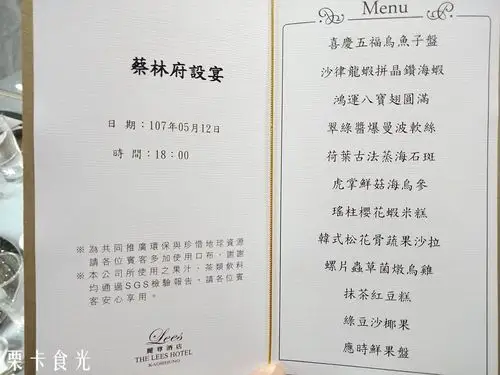 蔡林府設宴
日 期：107年05月12日
時 間：18:00
※為共同推廣環保與珍惜地球資源
請各位賓客多加使用口布，謝謝
※本公司所使用之果汁、茶類飲料
均通過SGS檢驗報告，請各位賓
客安心享用。
Lees
麗尊酒店
THE LEES HOTEL
KAOHSIUNG
Menu
喜慶五福烏魚子盤
沙律龍蝦拼晶鑽海蝦
鴻運八寶翅圓滿
翠綠醬爆曼波軟絲
荷葉古法蒸海石斑
虎掌鮮菇海烏參
瑤柱櫻花蝦米糕
韓式松花骨蔬果沙拉
螺片蟲草菌燉烏雞
抹茶紅豆糕
綠豆沙椰果
應時鮮果盤
栗卡食光